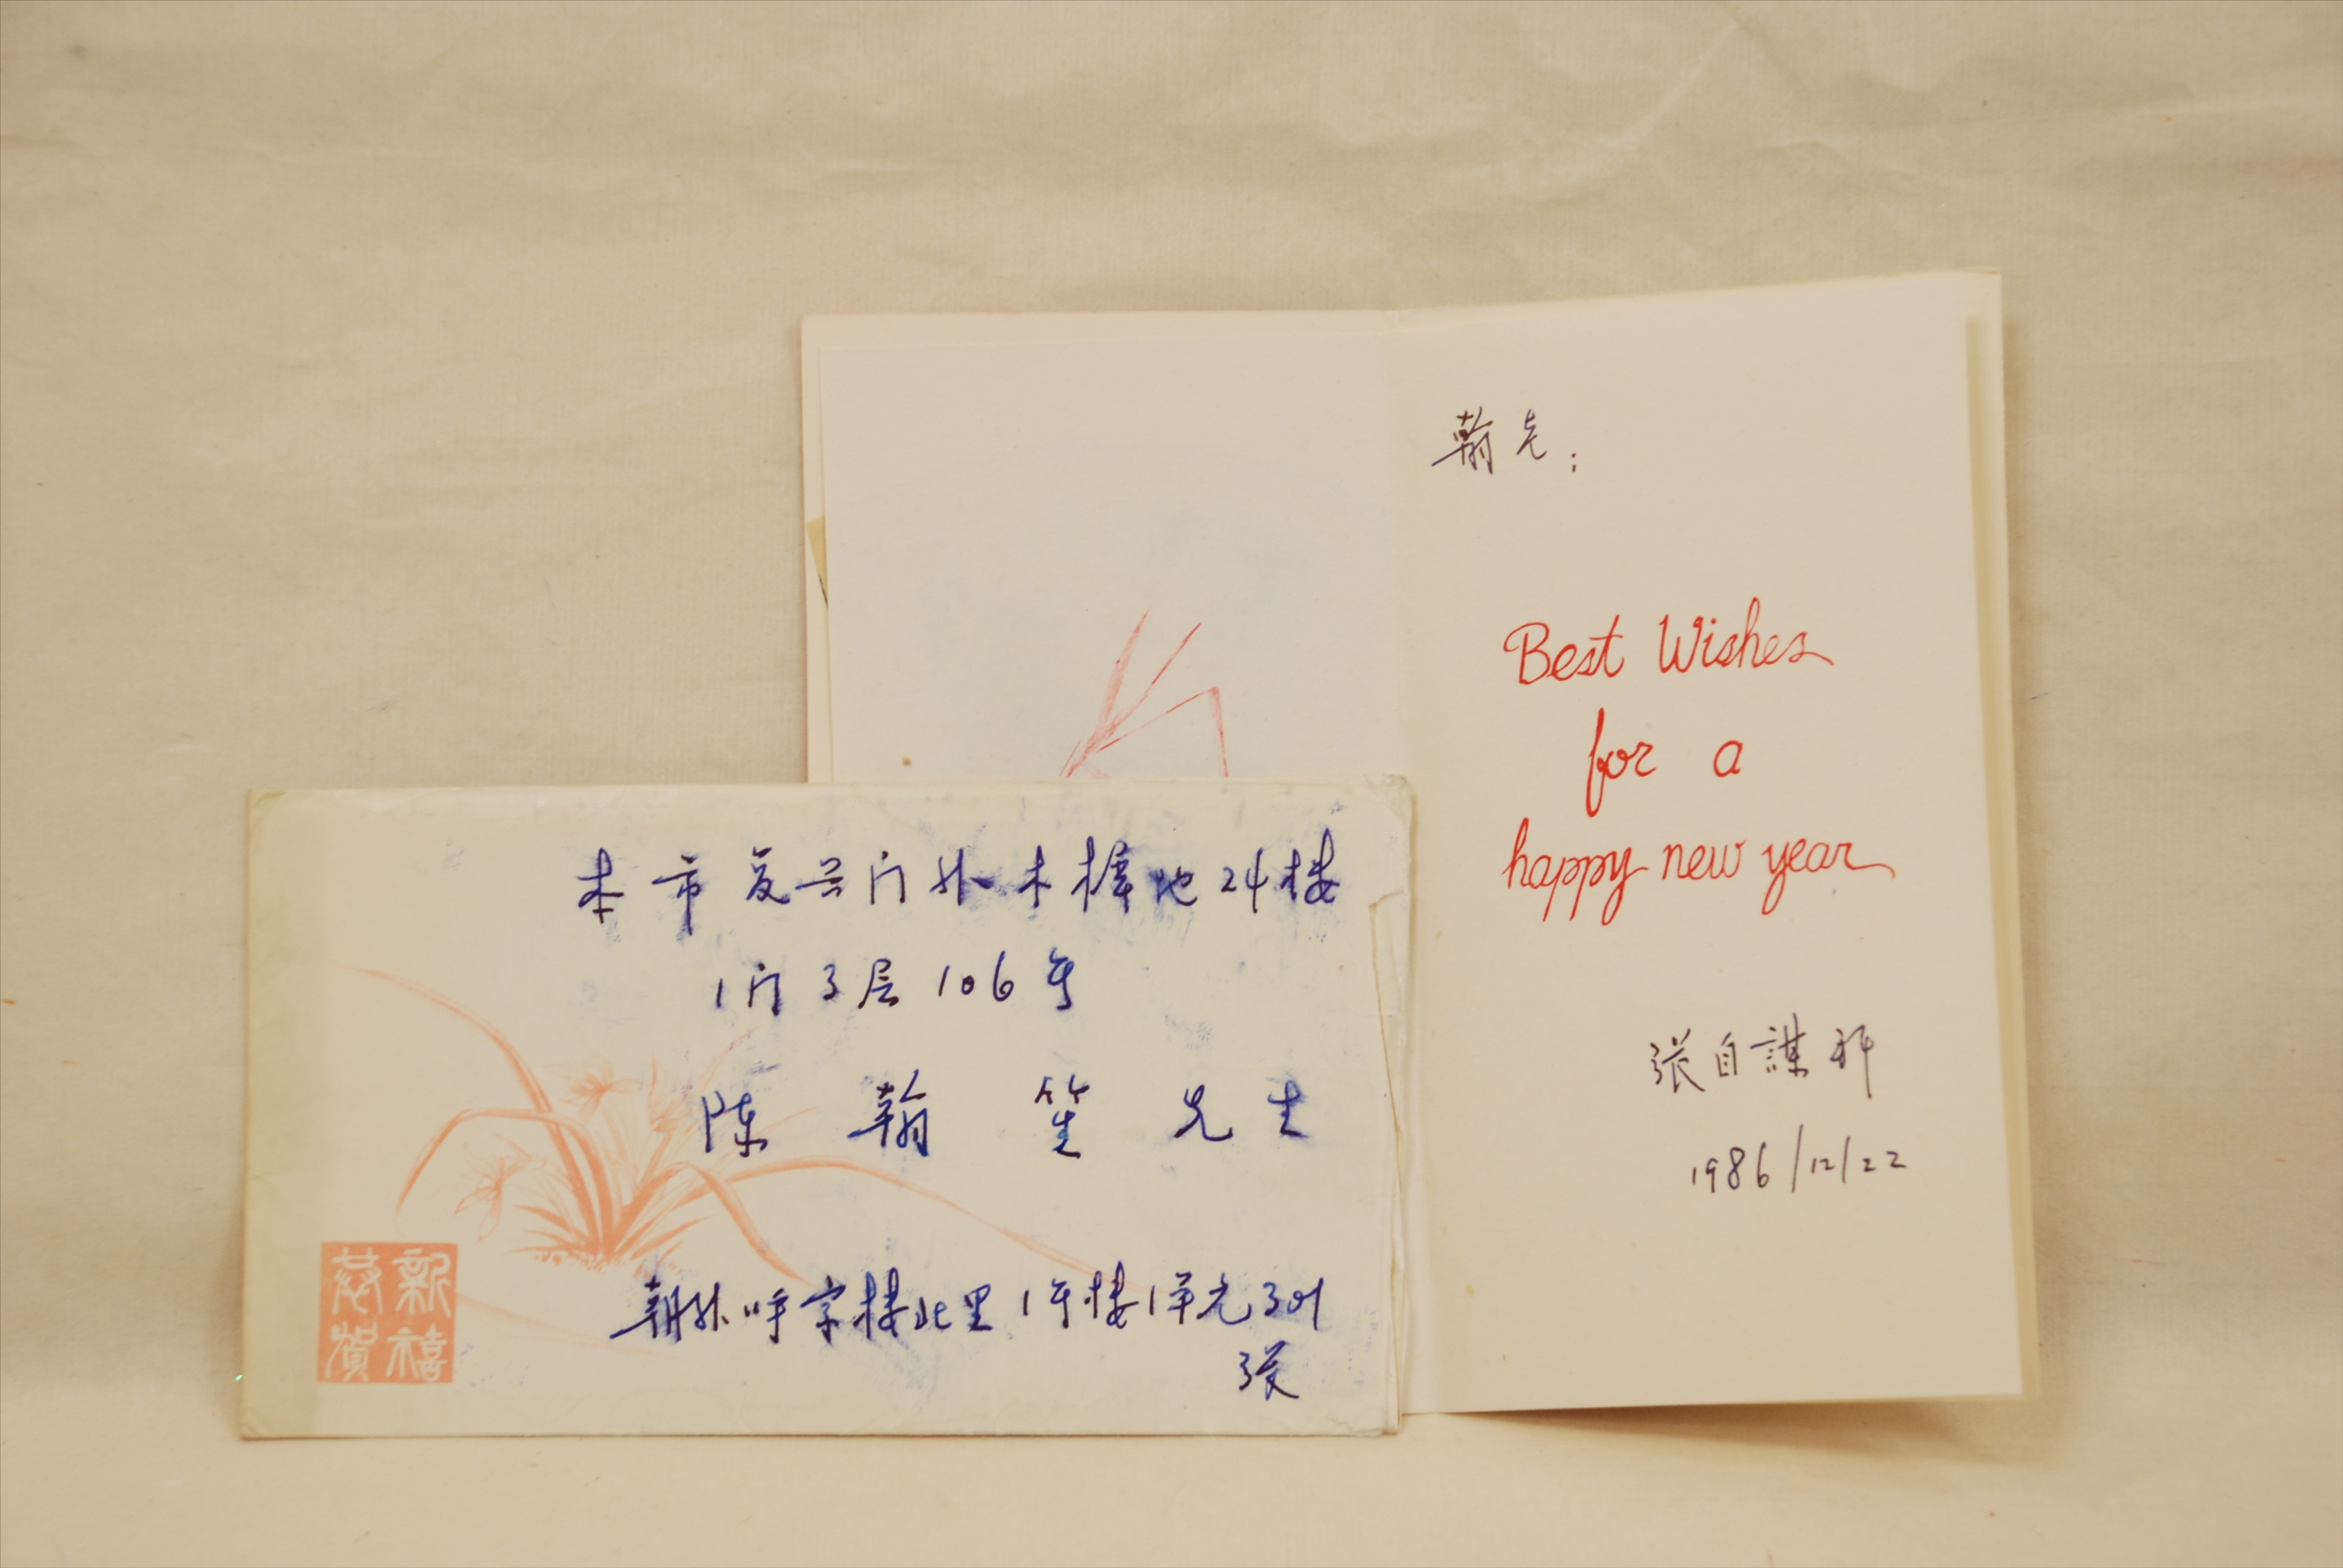 本市复兴门外木樨地24楼
1门3层106号
陈翰笙先生
朝外呼家楼北里1号楼1单元301
张
新禧
恭贺
翰老:
Best Wishes
for a
happy new year
張自謀拜
1986/12/22